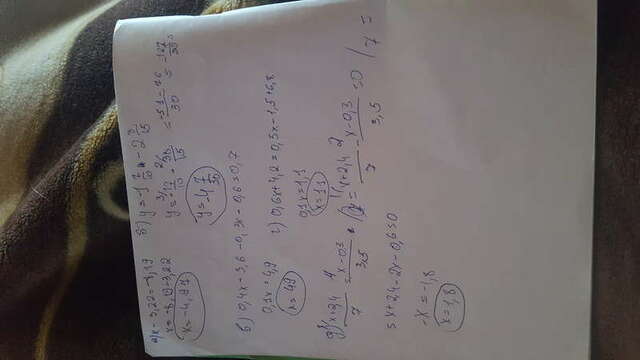 а) x - 3,22 = -8,19
x = -8,19 + 3,22
x = -4,97
б) y = -1 7/10 - 2 8/15
y = -17/10 - 38/15 = -51-76/30 = -127/30 =
y = -4 7/30
в) 0,4x - 3,6 - 0,3x - 0,6 = 0,7
0,1x = 4,9
x = 49
г) 0,6x + 4,2 = 0,5x - 1,5 + 6,8
0,1x = 1,1
x = 11
x+2,4/7 = x-0,3/3,5
x+2,4/7 - x-0,3/3,5 = 0 / 7 =
= x + 2,4 - 2x - 0,6 = 0
-x = -1,8
x = 1,8